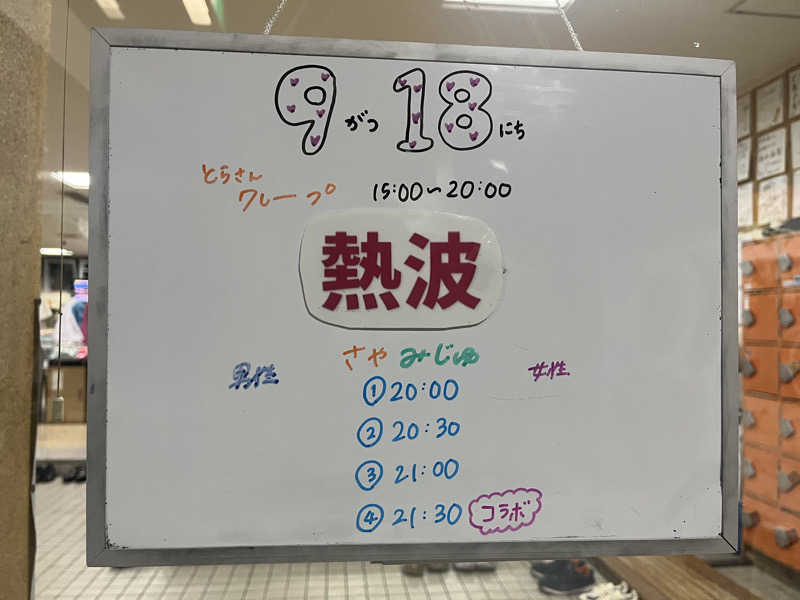 9がつ18にち
とらさん
クレープ 15:00〜20:00
熱波
さや みじゅ
男性 女性
①20:00
②20:30
③21:00
④21:30 コラボ